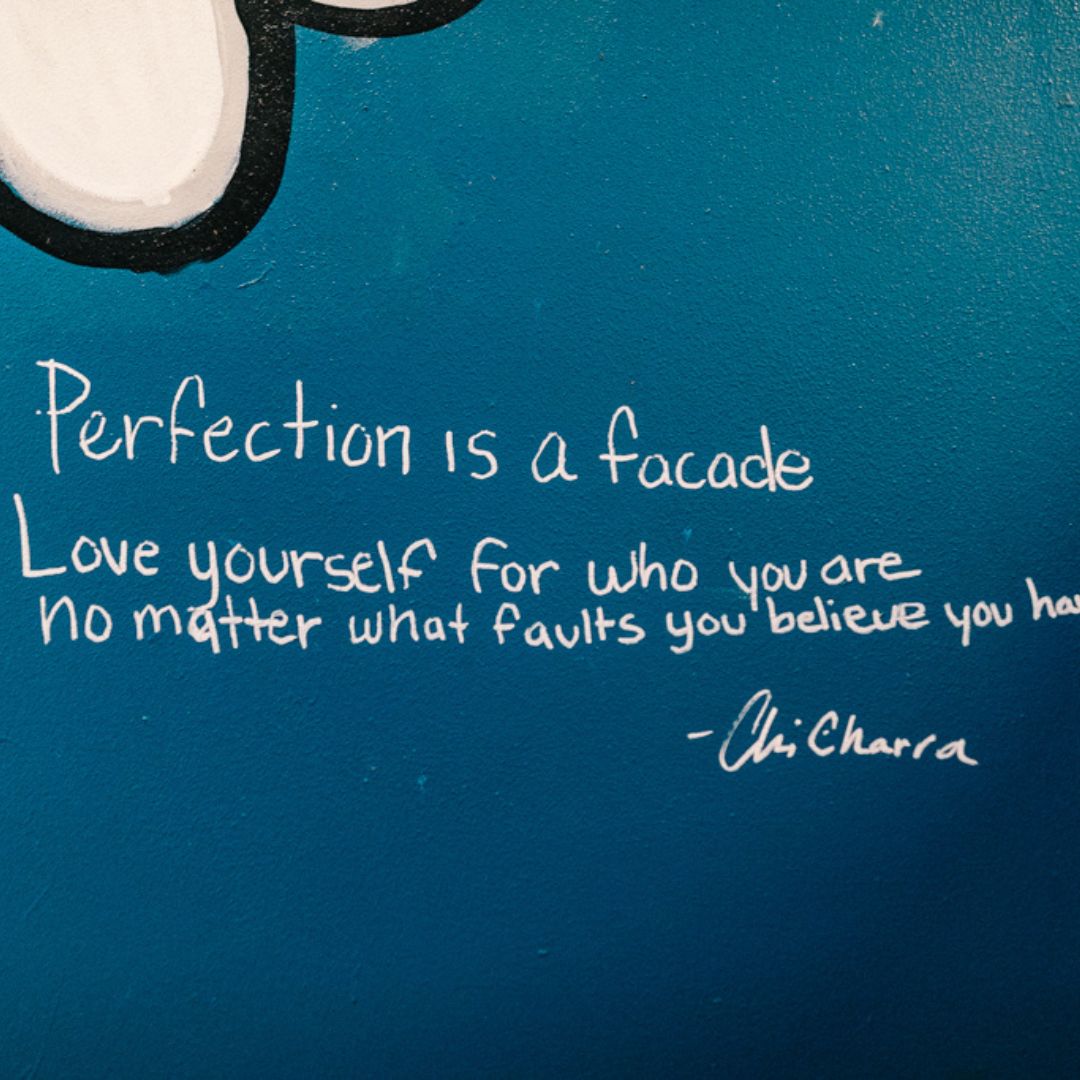 Perfection is a facade
Love yourself for who you are
no matter what faults you believe you ha
- ChiCharra